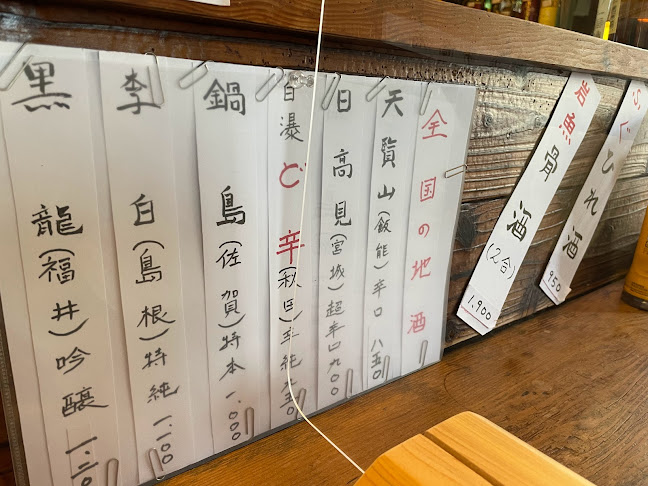 ふぐひれ酒 950
岩魚骨酒 (2合) 1,900
全国の地酒
天覧山(飯能)辛口 八五〇
日高見(宮城)超辛口九〇〇
白瀑ど辛(秋田)辛純
鍋島(佐賀)特本 一、〇〇〇
李白(島根)特純 一、一〇〇
黒龍(福井)吟醸